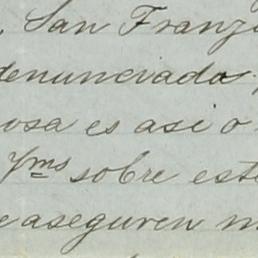 San Franz
denunciado
osa es asi o
Yms sobre est
e aseguren m